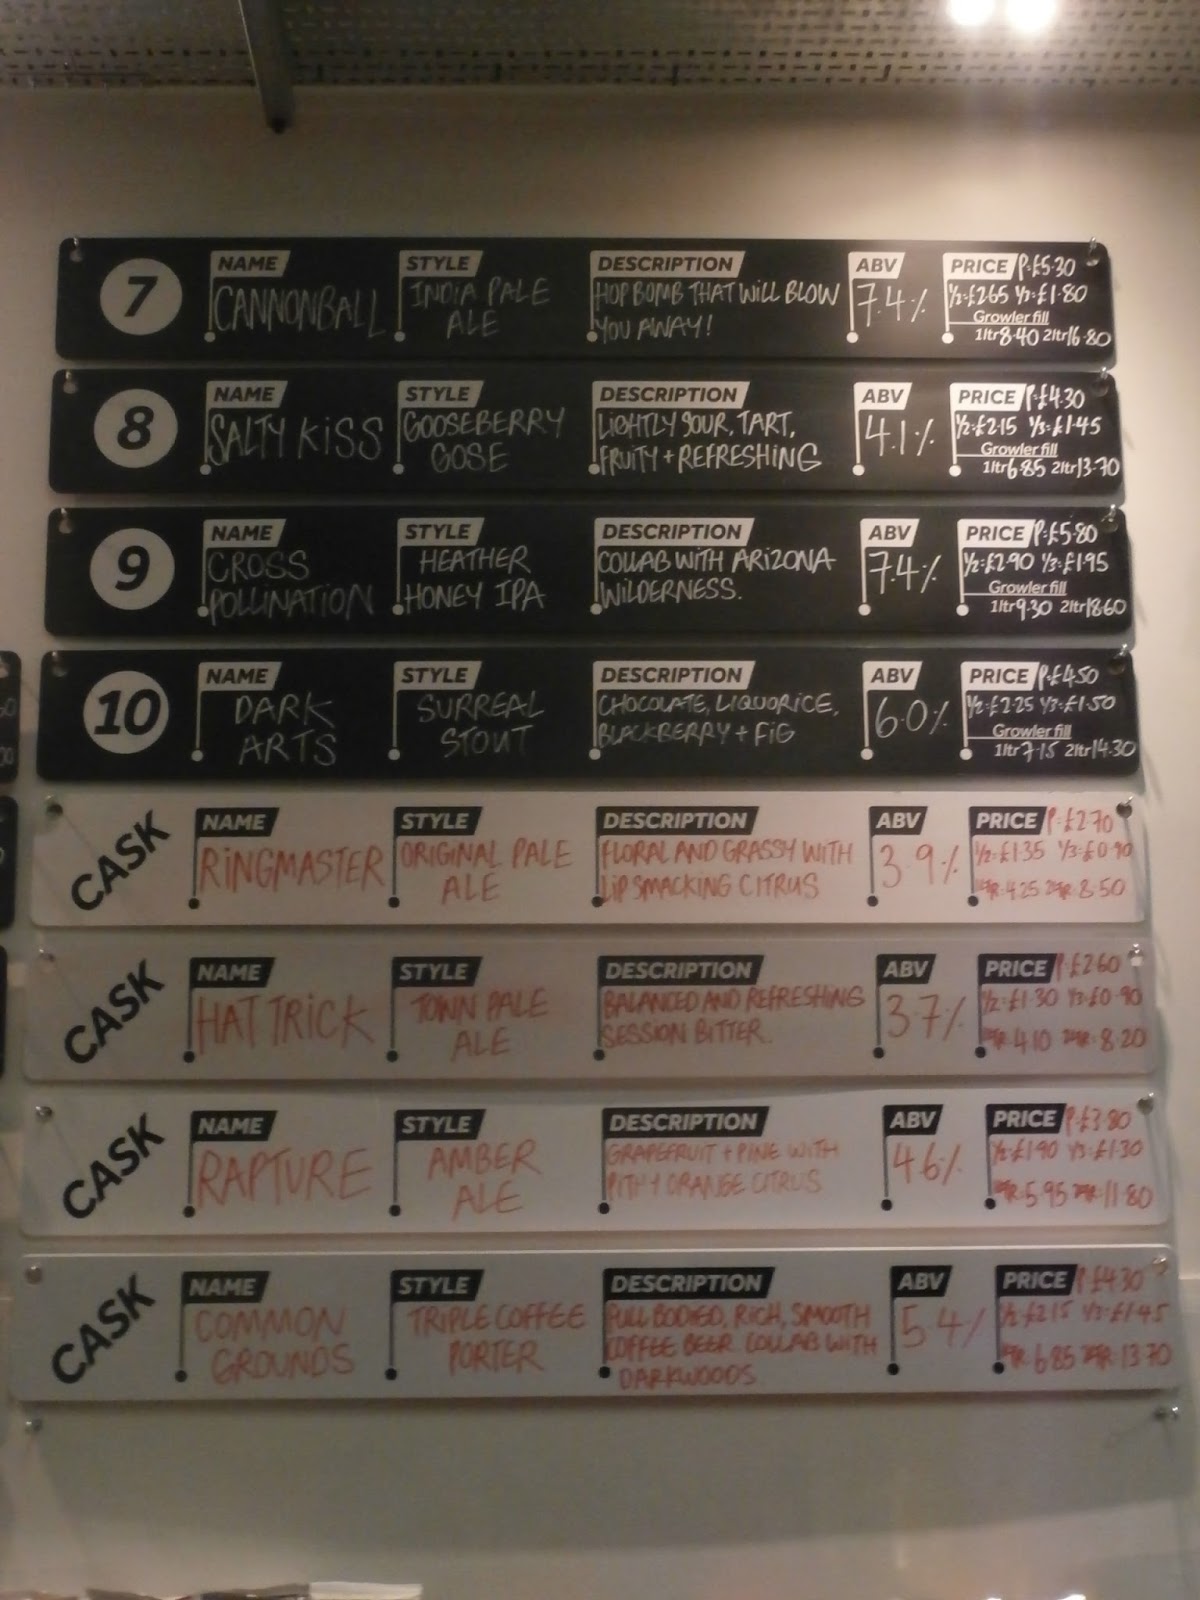 7 NAME STYLE DESCRIPTION ABV PRICE P:£5·30
CANNONBALL INDIA PALE HOP BOMB THAT WILL BLOW 7.4% ½:£2.65 ⅓:£1.80
ALE YOU AWAY! Growler fill
1ltr 8·40 2ltr 16·80
8 NAME STYLE DESCRIPTION ABV PRICE P:£4·30
SALTY KISS GOOSEBERRY LIGHTLY SOUR, TART, 4.1% ½:£2·15 ⅓:£1·45
GOSE FRUITY + REFRESHING Growler fill
1ltr 6·85 2ltr 13·70
9 NAME STYLE DESCRIPTION ABV PRICE P:£5·80
CROSS HEATHER COLLAB WITH ARIZONA 7.4% ½:£2·90 ⅓:£1·95
POLLINATION HONEY IPA WILDERNESS. Growler fill
1ltr 9·30 2ltr 18·60
10 NAME STYLE DESCRIPTION ABV PRICE P:£4·50
DARK SURREAL CHOCOLATE, LIQUORICE, 6.0% ½:£2·25 ⅓:£1·50
ARTS STOUT BLACKBERRY + FIG Growler fill
1ltr 7·15 2ltr 14·30
CASK NAME STYLE DESCRIPTION ABV PRICE P:£2·70
RINGMASTER ORIGINAL PALE FLORAL AND GRASSY WITH 3.9% ½:£1·35 ⅓:£0·90
ALE LIPSMACKING CITRUS 4·25 8·50
CASK NAME STYLE DESCRIPTION ABV PRICE P:£2·60
HAT TRICK TOWN PALE BALANCED AND REFRESHING 3.7% ½:£1·30 ⅓:£0·90
ALE SESSION BITTER. 4·10 8·20
CASK NAME STYLE DESCRIPTION ABV PRICE P:£3·80
RAPTURE AMBER GRAPEFRUIT + PINE WITH 4.6% ½:£1·90 ⅓:£1·30
ALE PITHY ORANGE CITRUS 5·95 11·80
CASK NAME STYLE DESCRIPTION ABV PRICE P:£4·30
COMMON TRIPLE COFFEE FULL BODIED, RICH, SMOOTH 5.4% ½:£2·15 ⅓:£1·45
GROUNDS PORTER COFFEE BEER. COLLAB WITH 6·85 13·70
DARKWOODS